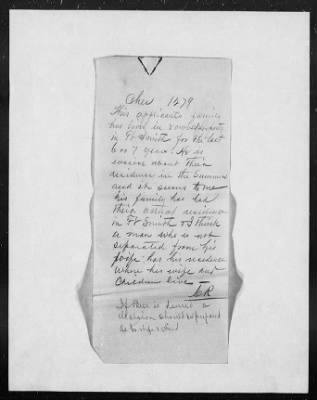 Cher 1279
This applicants family
has been in
in Ft Smith for the last
6 or 7 years. He is
evasive about their
residence in the Summer
and it seems to me
his family has had
their actual residence
in Ft Smith & I think
a man who is not
separated from his
wife has his residence
where his wife and
Children live
If there is
decision should be prepared
as to wife &